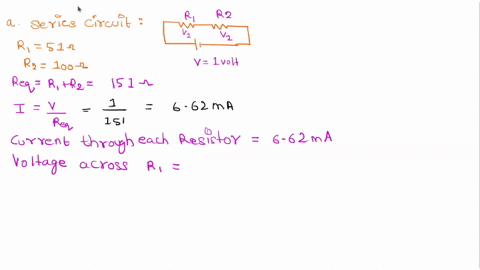 a. series circuit :
R₁ R2
V₁ V₂
V = 1 volt
R₁ = 51Ω
R₂ = 100Ω
Req = R₁+R₂ = 151Ω
I = V/Req = 1/151 = 6.62 mA
Current through each Resistor = 6.62 mA
Voltage across R₁ =